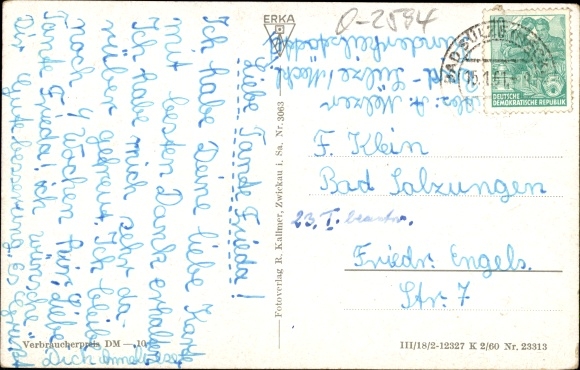 O-2594
ERKA
BAD SÜLZE
DEUTSCHE
DEMOKRATISCHE REPUBLIK
Liebe Tante Frieda!
Ich habe Deine liebe Karte
mit besten Dank erhalten
Ich habe mich sehr da-
rüber gefreut. Ich bleibe
noch 4 Wochen hier. Liebe
Tante Frieda! ich wünsche
Dir Gute besserung. Es Grüßt
Dich Anneliese
Abs. A. Melzer
Bad-Sülze/Meckl
Kinderheilstätte
F. Klein
Bad Salzungen
23. I. beantw.
Friedr. Engels.
Str. 7
Fotoverlag R. Kallmer, Zwickau i. Sa. Nr. 3063
Verbraucherpreis DM —.10
III/18/2-12327 K 2/60 Nr. 23313